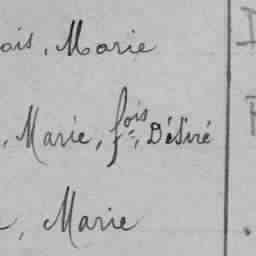 ois, Marie
, Marie, fois, Désiré
, Marie